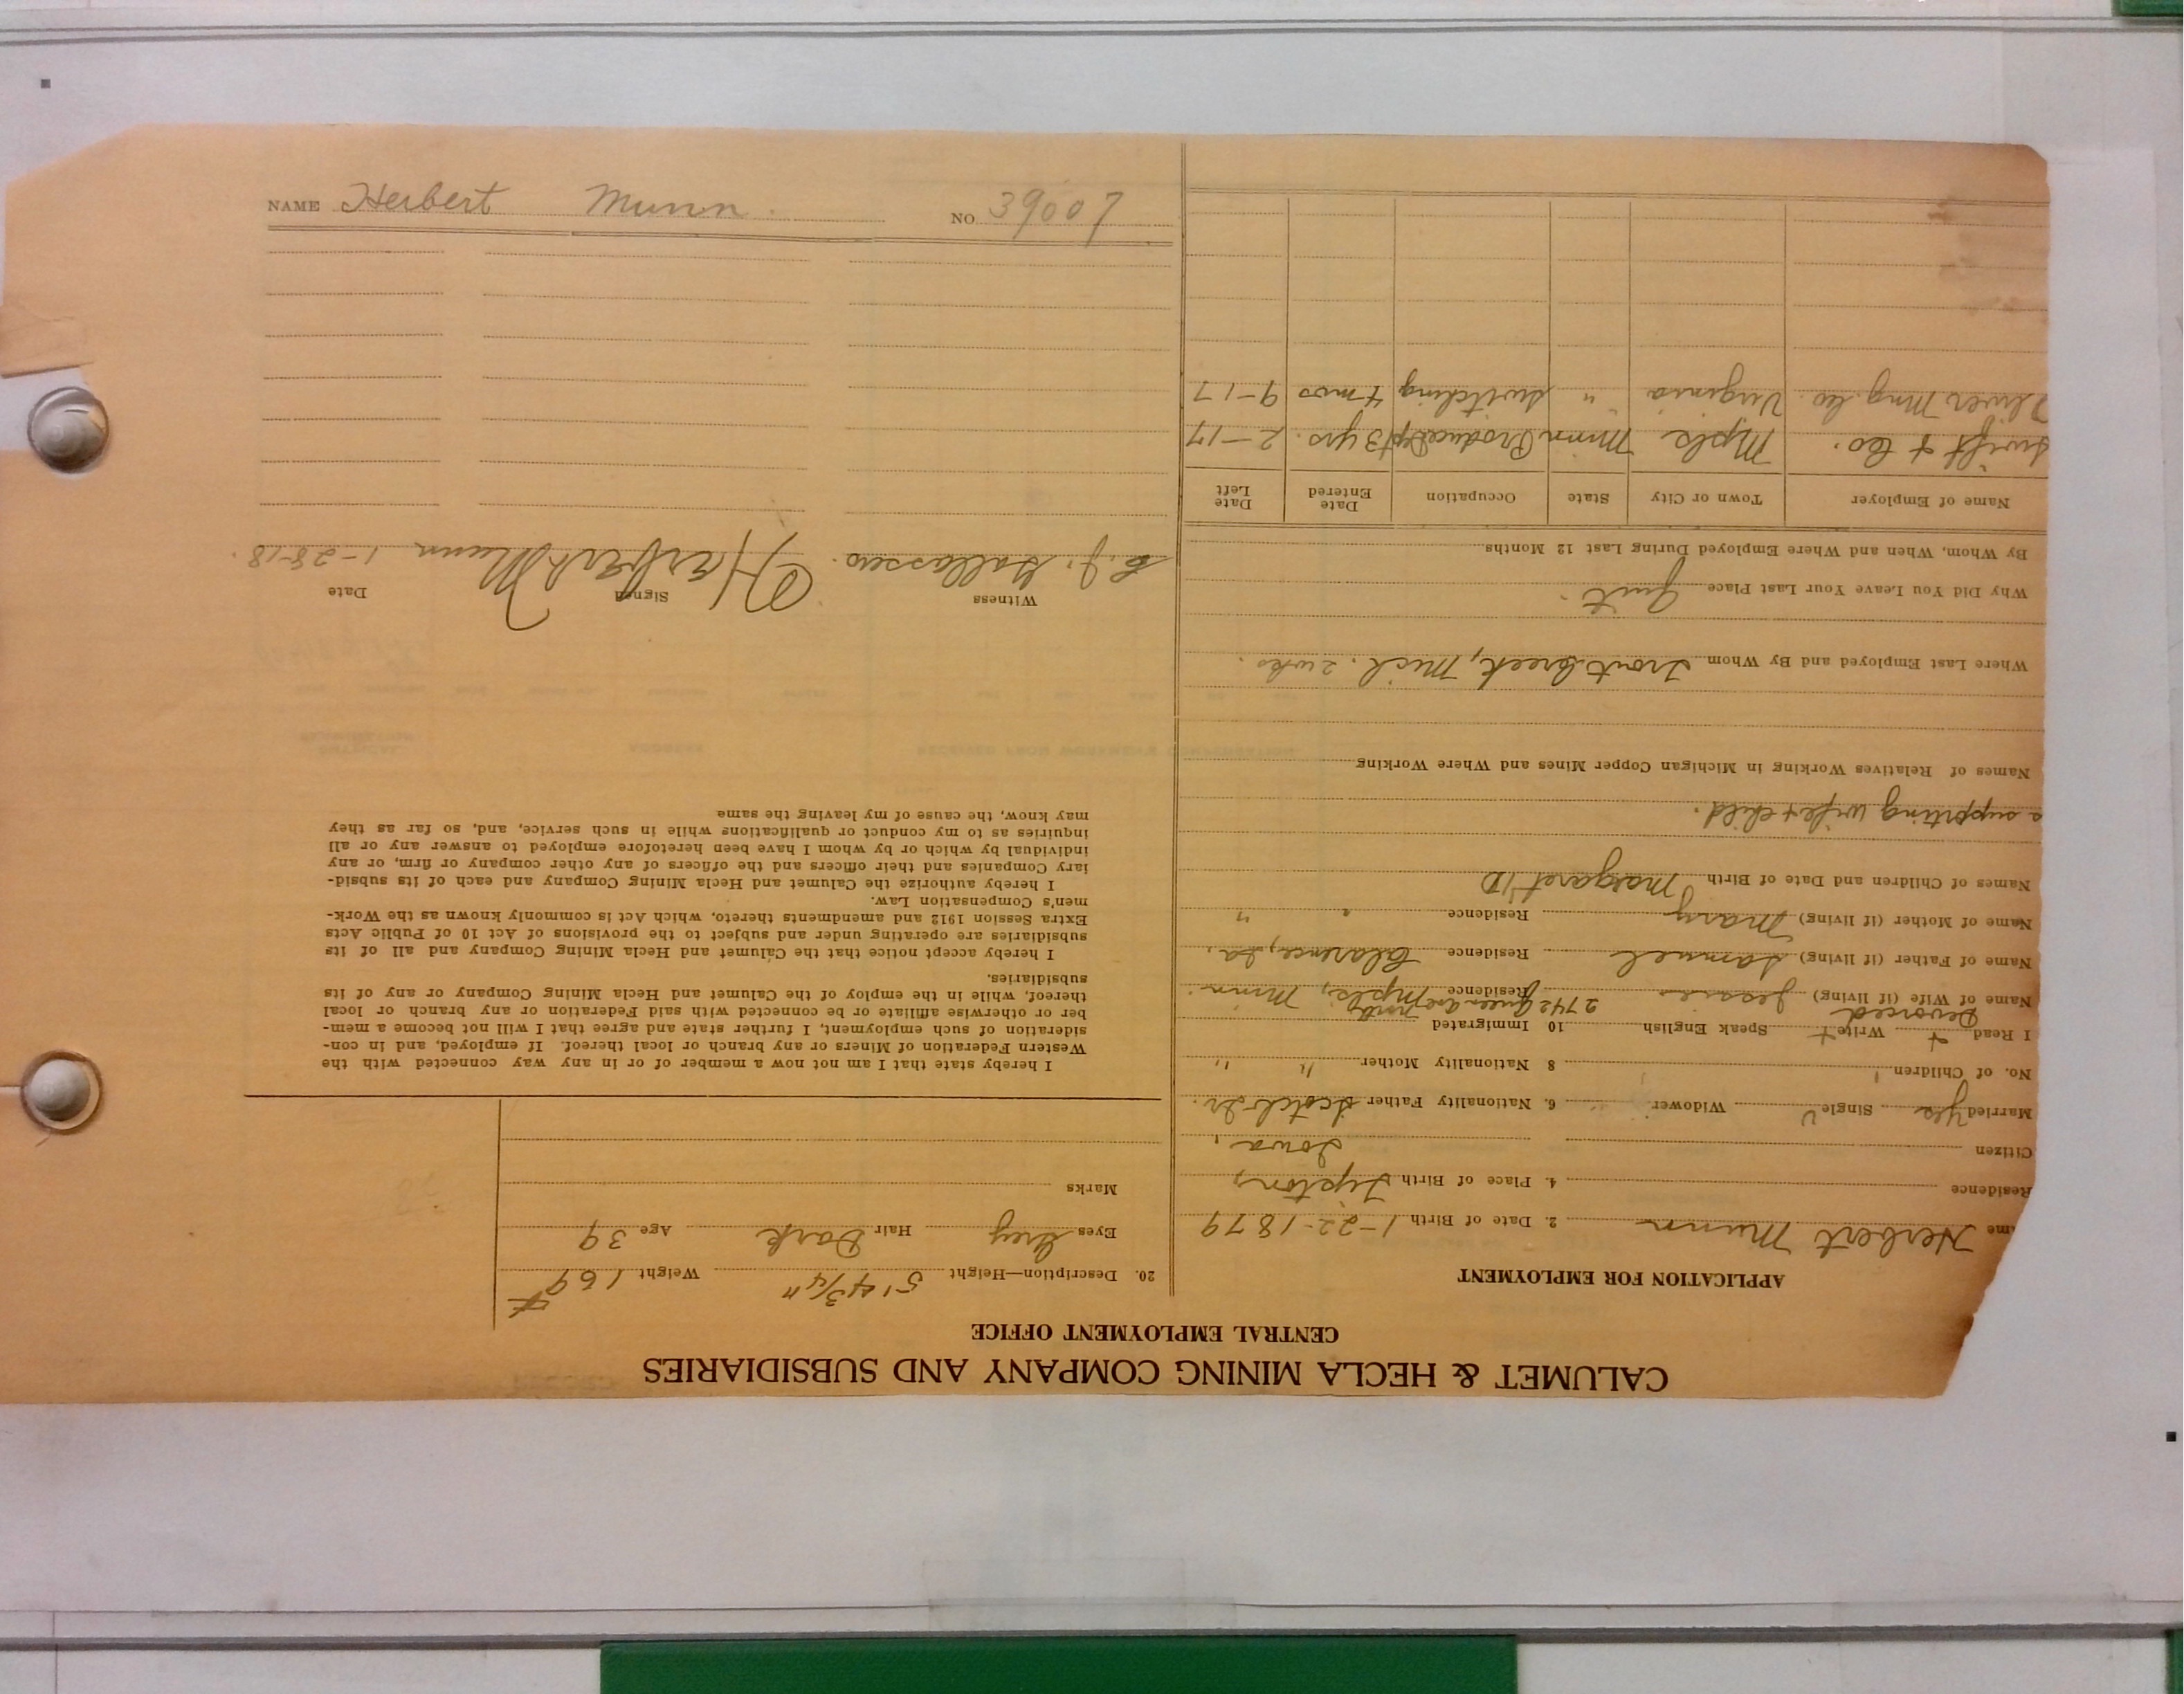 CALUMET & HECLA MINING COMPANY AND SUBSIDIARIES
CENTRAL EMPLOYMENT OFFICE
APPLICATION FOR EMPLOYMENT
me Herbert Munn 2. Date of Birth 1-22-1879
Residence 4. Place of Birth Tipton,
Citizen Iowa,
Married yes Single Widower 6. Nationality Father Scotch-Ir.
No. of Children 1 8 Nationality Mother " "
I Read + Write + Speak English 10 Immigrated
Devorced 2742 Queen Ave
Name of Wife (if living) Jessie Residence Mpls, Minn.
Name of Father (if living) Samuel Residence Clarence, Ia.
Name of Mother (if living) Mary Residence " "
Names of Children and Date of Birth Margaret
supporting wife + child.
Names of Relatives Working in Michigan Copper Mines and Where Working
Where Last Employed and By Whom Trout Creek, Mich. 2 wks.
Why Did You Leave Your Last Place Quit.
By Whom, When and Where Employed During Last 12 Months
Name of Employer Town or City State Occupation Date Entered Date Left
Swift & Co. Mpls Minn Produce Dpt 3 yrs. 2-17
Oliver Mng. Co. Virginia " switching 4 mos 9-17
20. Description—Height 5' 4 3/4" Weight 169 #
Eyes Grey Hair Dark Age 39
Marks
I hereby state that I am not now a member of or in any way connected with the
Western Federation of Miners or any branch or local thereof. If employed, and in con-
sideration of such employment, I further state and agree that I will not become a mem-
ber or otherwise affiliate or be connected with said Federation or any branch or local
thereof, while in the employ of the Calumet and Hecla Mining Company or any of its
subsidiaries.
I hereby accept notice that the Calumet and Hecla Mining Company and all of its
subsidiaries are operating under and subject to the provisions of Act 10 of Public Acts
Extra Session 1912 and amendments thereto, which Act is commonly known as the Work-
men's Compensation Law.
I hereby authorize the Calumet and Hecla Mining Company and each of its subsid-
iary Companies and their officers and the officers of any other company or firm, or any
individual by which or by whom I have been heretofore employed to answer any or all
inquiries as to my conduct or qualifications while in such service, and, so far as they
may know, the cause of my leaving the same
Witness Signed Date
Herbert Munn 1-28-18.
NAME Herbert Munn. NO. 39007